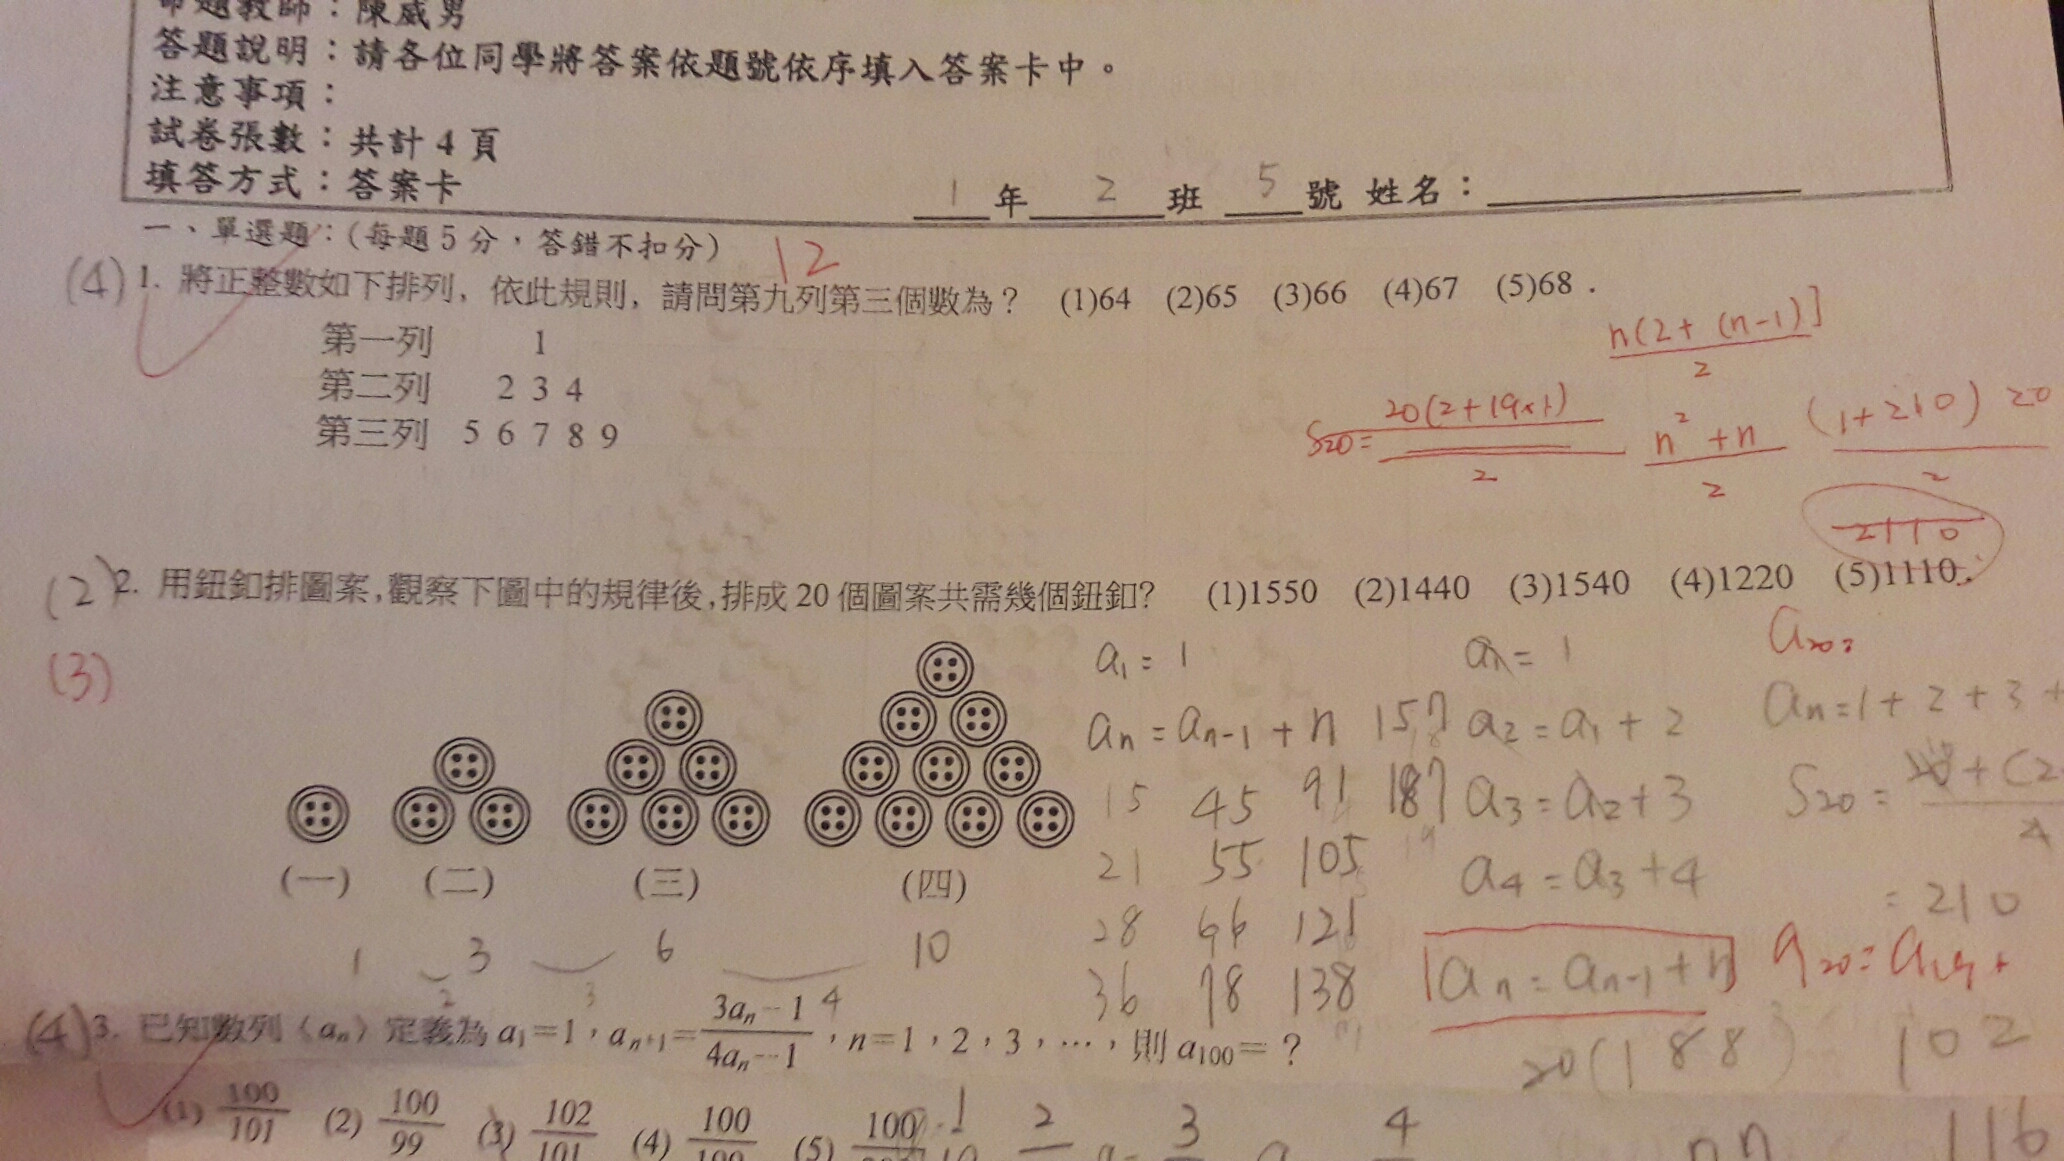 命題教師：陳威男
答題說明：請各位同學將答案依題號依序填入答案卡中。
注意事項：
試卷張數：共計4頁
填答方式：答案卡
1年2班5號 姓名：
一、單選題：(每題5分，答錯不扣分)
12
(4) 1. 將正整數如下排列，依此規則，請問第九列第三個數為？ (1)64 (2)65 (3)66 (4)67 (5)68．
第一列 1
第二列 2 3 4
第三列 5 6 7 8 9
n(2+(n-1)]
2
S20= 20(2+19×1)
2
n²+n
2
(1+210) 20
2
2110
(2) 2. 用鈕釦排圖案,觀察下圖中的規律後,排成20個圖案共需幾個鈕釦? (1)1550 (2)1440 (3)1540 (4)1220 (5)1110.
(3)
(一) (二) (三) (四)
1 3 6 10
2 3 4
a1 = 1
an = an-1 + n
15 45 91 187
21 55 105
28 66 121
36 78 138
157
an = 1
a2 = a1 + 2
a3 = a2 + 3
a4 = a3 + 4
an = an-1 + n
a20=
an = 1 + 2 + 3 +
S20 =
= 210
a20 = a19 +
20(188) 102
(4) 3. 已知數列〈an〉定義為 a1=1，an+1= 3an－1 / 4an－1，n=1，2，3，…，則 a100=？
(1) 100/101 (2) 100/99 (3) 102/101 (4) 100 (5) 100
1 2 3 4
116